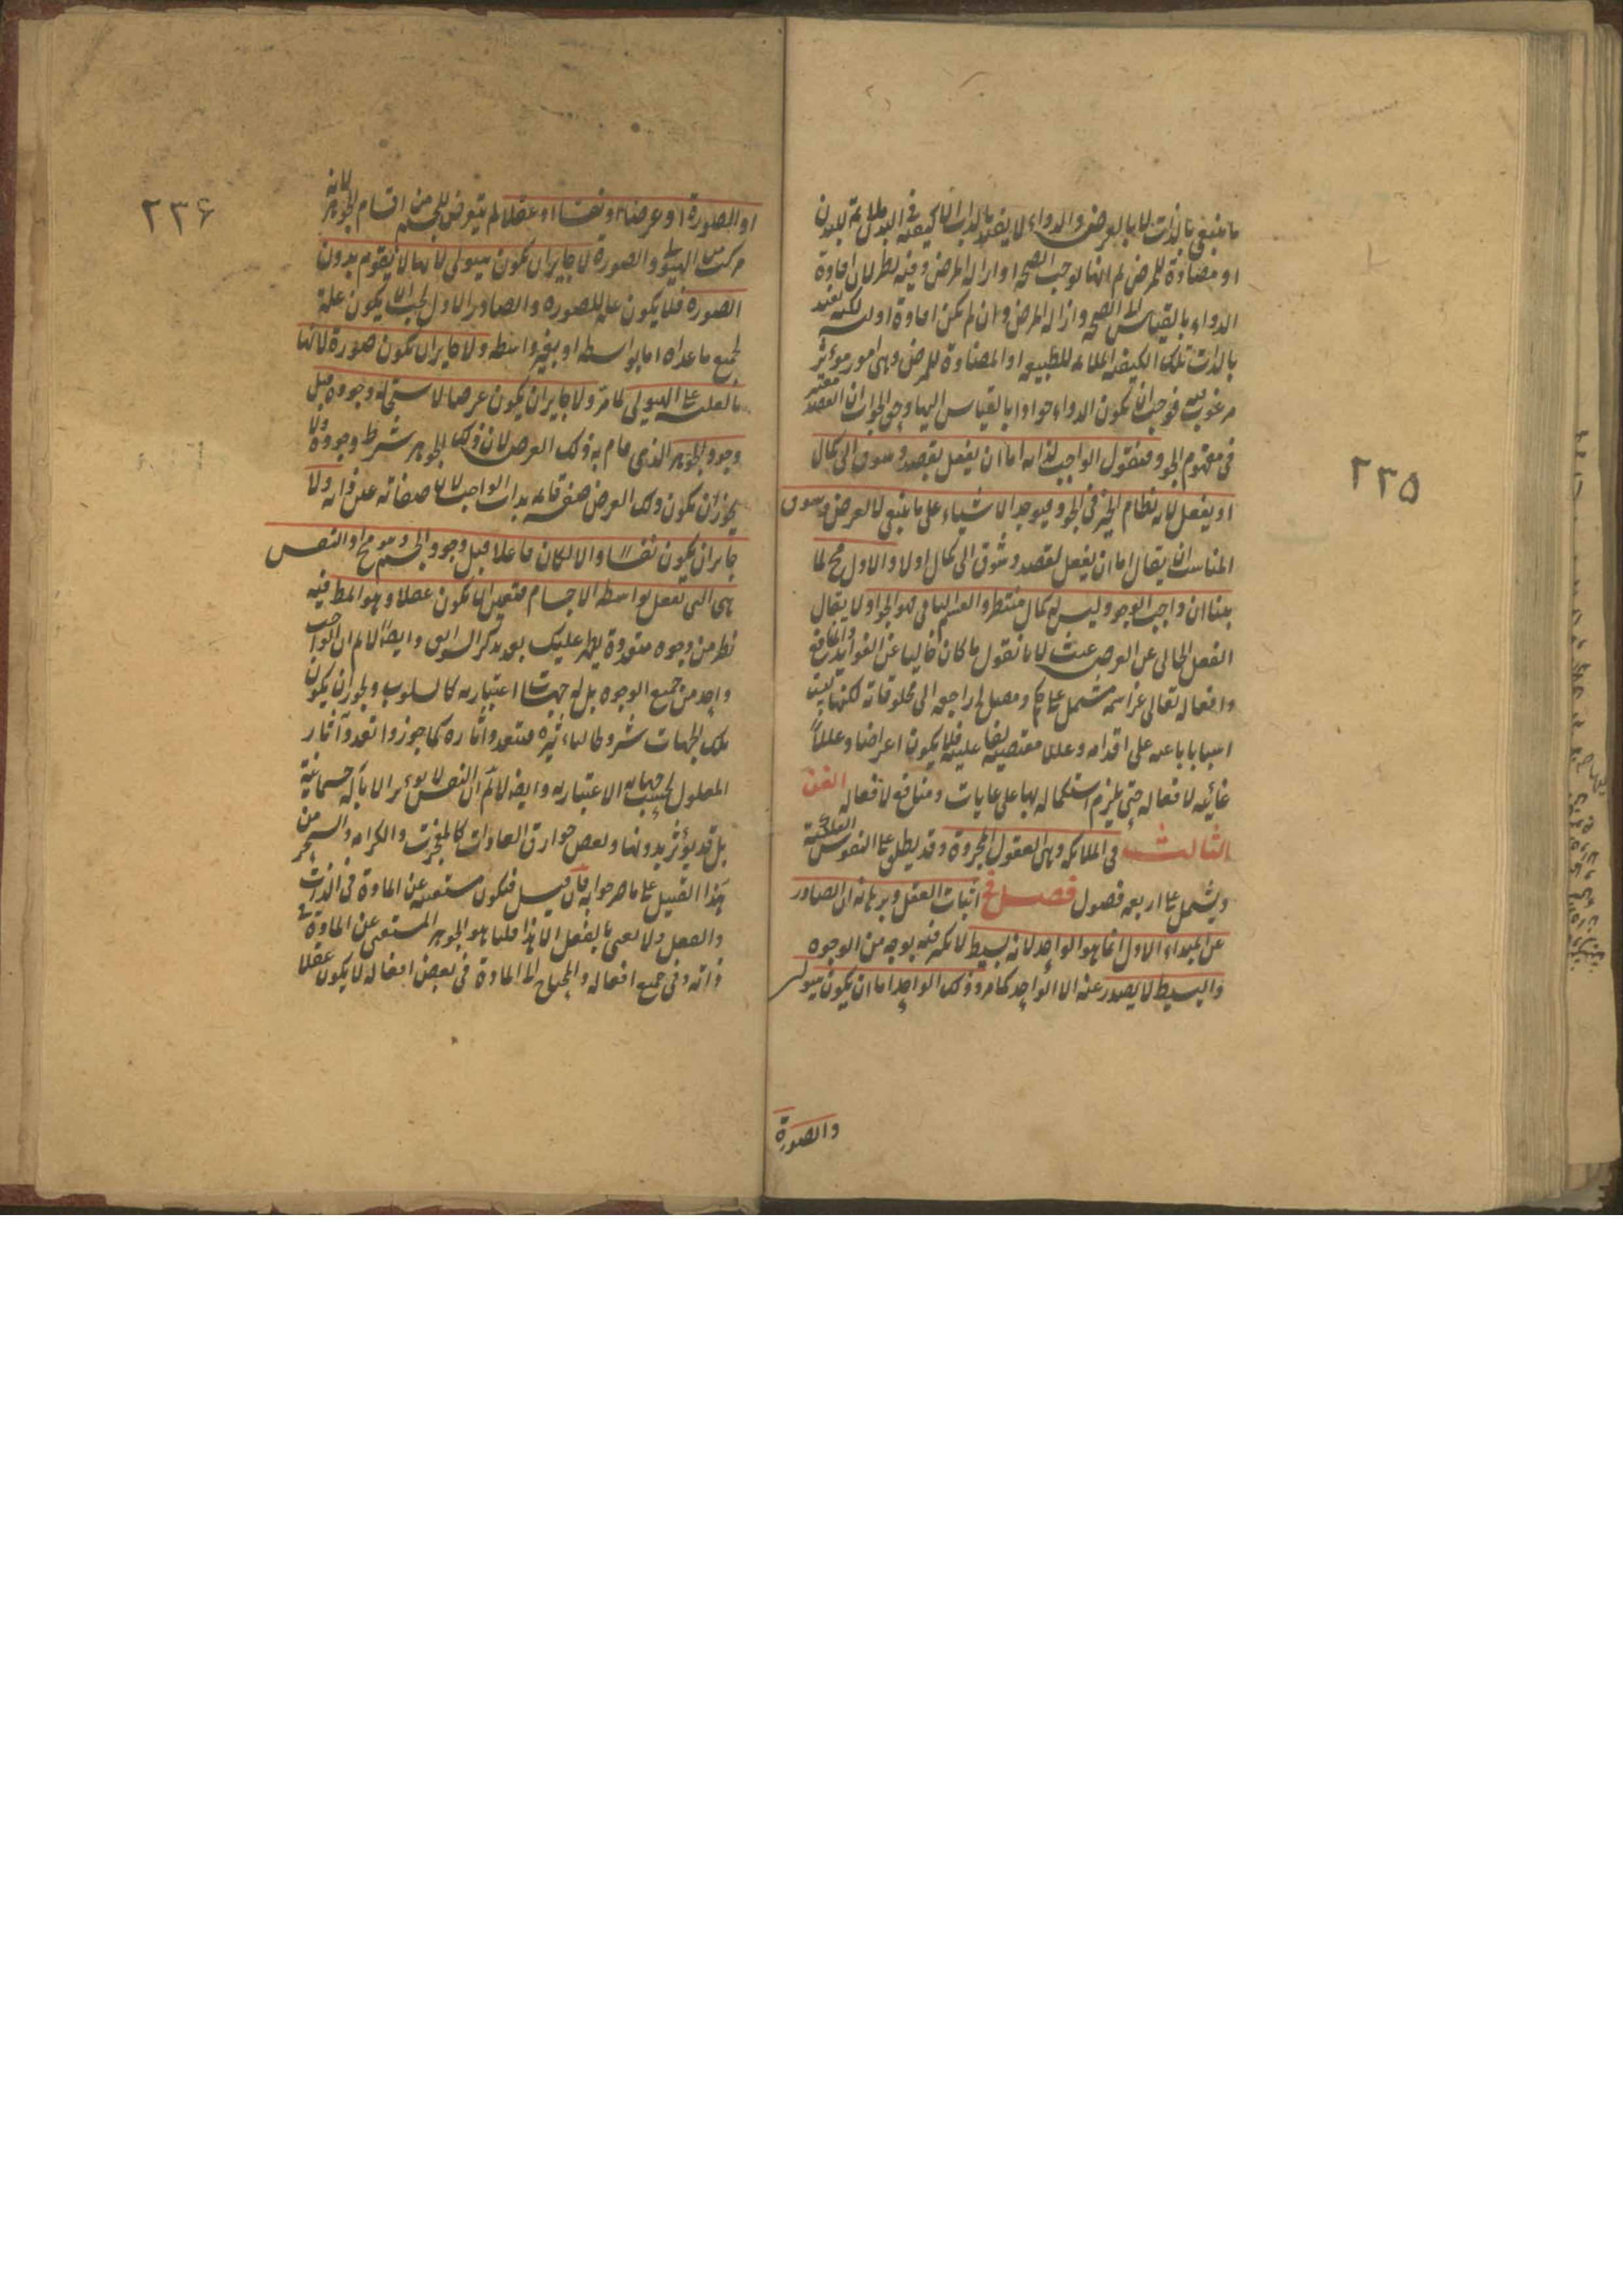 ٢٣٥
ما ينبغى بالذات لا بالعرض والدواء لا يفيد بالذات الا كيفية فى البدن ملائمة للبدن
او مضادة للمرض ثم انها توجب الصحة او ازالة المرض وفيه نظر لان افادة
الدواء بالقياس الى الصحة وازالة المرض وان لم يكن افادة اولية لكنه يفيد
بالذات تلك الكيفية الملائمة للطبيعة او المضادة للمرض وهى امور مؤثر
مرغوب فيه فوجب ان يكون الدواء جوادا بالقياس اليها وجوابه ان القصد معتبر
فى مفهوم الجود فنقول الواجب لذاته اما ان يفعل بقصد وشوق الى كمال
او يفعل لانه نظام الخير فى الجود فيوجد الاشياء على ما ينبغى لا لعرض وشوق
المناسب ان يقال اما ان يفعل لقصد وشوق الى كمال اولا والاول مح لما
بينا ان واجب الوجود ليس له كمال منتظر والقسم الثانى فهو الجواد لا يقال
الفعل الخالى عن الغرض عبث لانا نقول ما كان خاليا عن الفوائد والمنافع
وافعاله تعالى عز اسمه مشتمل على حكم ومصلح راجعة الى مخلوقاته لكنها ليست
اسبابا باعثة على اقدامه وعللا مقتضية لفاعليته فلا يكون اغراضا وعللاً
غائية لافعاله حتى يلزم استكماله بها بل غايات ومنافع لافعاله الفن
الثالث فى الملائكة وهى العقول المجردة وقد يطلق على النفوس الفلكية
ويشمل على اربعة فصول فصل فى اثبات العقل وبرهانه ان الصادر
عن المبداء الاول انما هو الواحد لانه بسيط لا تكثر فيه بوجه من الوجوه
والبسيط لا يصدر عنه الا الواحد كما مر وذلك الواحد اما ان يكون هيولى
والصورة
٢٣۶
او الصورة او عرضا او نفسا او عقلا لم يتعرض للجسم من اقسام الجوهر لانه
مركب من الهيولى والصورة لا جايز ان يكون هيولى لانها لا يقوم بدون
الصورة فلا يكون علة للصورة والصادر الاول يجب ان يكون علة
لجميع ما عداه اما بواسطة او بغير واسطة ولا جايز ان يكون صورة لانها
بالعلية على الهيولى كما مر ولا جايز ان يكون عرضا لاستحالة وجوده قبل
وجود الجوهر الذى قام به ذلك العرض لان ذلك الجوهر شرط وجوده ولا
يجوز ان يكون ذلك العرض صفة قائمة بذات الواجب لان صفاته عين ذاته ولا
جايز ان يكون نفسا والا لكان فاعلا قبل وجود الجسم وهو مح اذ النفس
هى التى تفعل بواسطة الاجسام فتعين ان يكون عقلا وهو المط فيه
نظر من وجوه متعددة يظهر عليك بعد تذكر السوابق وايضا لا لم ان الواجب
واحد من جميع الوجوه بل له جهات اعتبارية كالسلوب ويجوز ان يكون
تلك الجهات شروطا لتاثيره فتعدد آثاره كما جوزوا تعدد آثار
المعلول بحسب جهاته الاعتبارية وايضا لا لم ان النفس لا يؤثر الا بآلة جسمانية
بل قد يؤثر بدونها وبعض خوارق العادات كالمعجزات والكرامة والسحر من
هذا القبيل على ما صرحوا به فان قيل فتكون مستغنية عن المادة فى الذات
والفعل ولا نعنى بالعقل الا هذا قلنا هو الجوهر المستغنى عن المادة فى
ذاته وفى جميع افعاله والمحتاج الى المادة فى بعض افعاله لا يكون عقلا